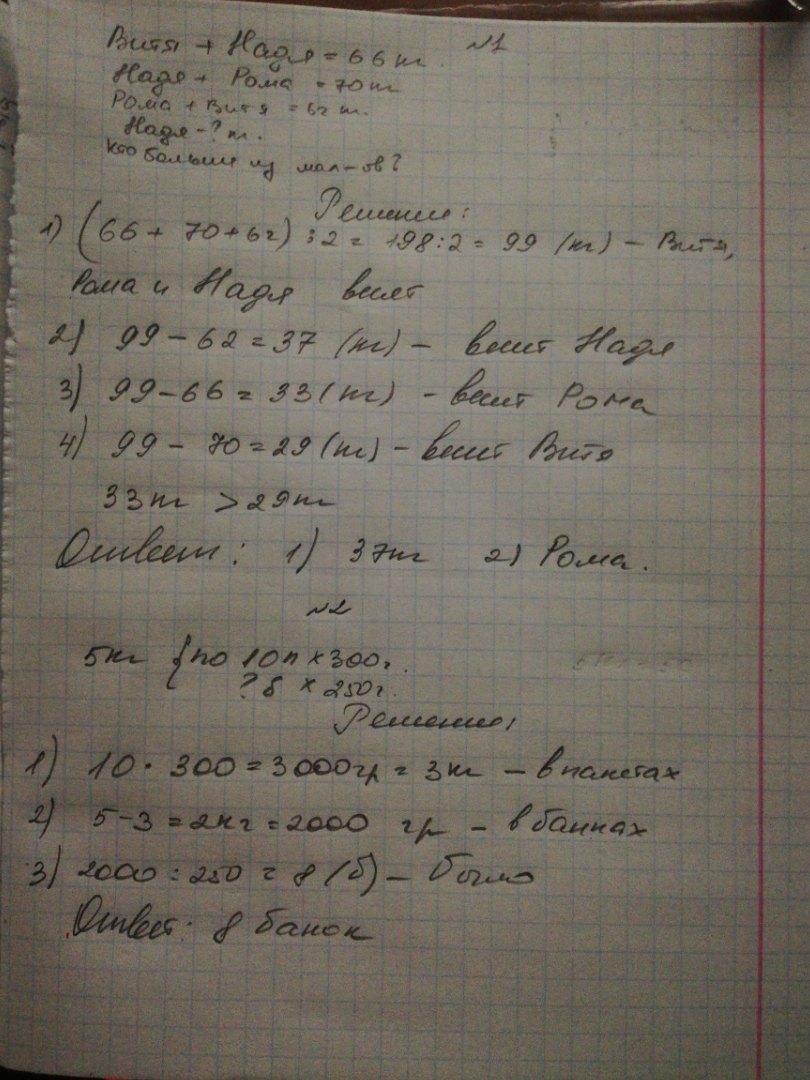 №1
Витя + Надя = 66 кг.
Надя + Рома = 70 кг
Рома + Витя = 62 кг.
Надя - ? кг.
Кто больше из мал-ов?
Решение:
1) (66 + 70 + 62) : 2 = 198 : 2 = 99 (кг) – Витя,
Рома и Надя весят
2) 99 – 62 = 37 (кг) – весит Надя
3) 99 – 66 = 33 (кг) – весит Рома
4) 99 – 70 = 29 (кг) – весит Витя
33 кг > 29 кг
Ответ: 1) 37 кг 2) Рома.
№2
5 кг { по 10п x 300г.
? б x 250г.
Решение:
1) 10 · 300 = 3000гр = 3 кг – в пакетах
2) 5 – 3 = 2кг = 2000 гр – в банках
3) 2000 : 250 = 8 (б) – было
Ответ: 8 банок